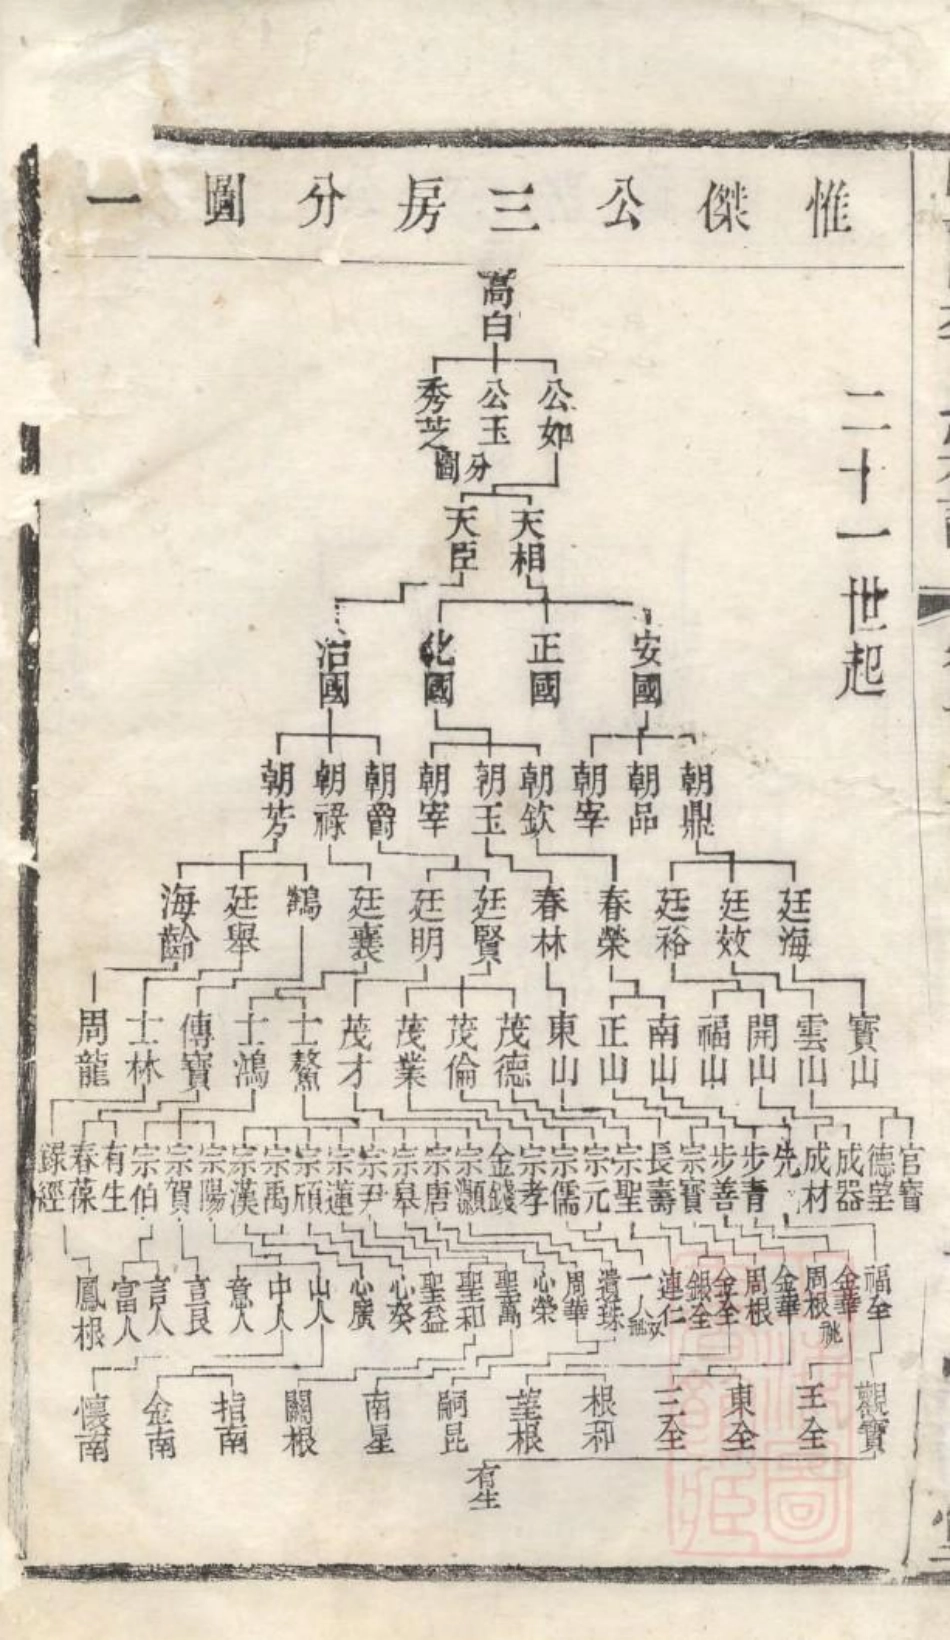 惟傑公三房分圖一
二十一世起
高白
公如 公玉 秀芝
分圖
天相 天臣
安國 正國 化國 治國
朝鼎 朝品 朝宰 朝欽 朝玉 朝宰 朝爵 朝祿 朝芳
廷海 廷效 廷裕 春榮 春林 廷賢 廷明 廷襄 鶴 廷舉 海齡
寶山 雲山 開山 福山 南山 正山 東山 茂德 茂倫 茂業 茂才 士鰲 士鴻 傳寶 士林 周龍
官寶 德堃 成器 成材 先 步青 步善 宗寶 長壽 宗聖 宗元 宗儒 宗孝 金錢 宗灝 宗唐 宗皋 宗尹 宗蓮 宗頎 宗禹 宗漢 宗陽 宗賀 宗伯 有生 春葆 錄經
福全 金華 周根 祧 金華 周根 金全 銀全 連仁 一人 遺珠 周華 心榮 聖萬 聖和 聖益 心葵 心廣 山人 中人 意人 言人 富人 鳳根
觀寶 王全 東全 三全 根和 堃根 嗣昆 南星 關根 指南 金南 懷南
有生